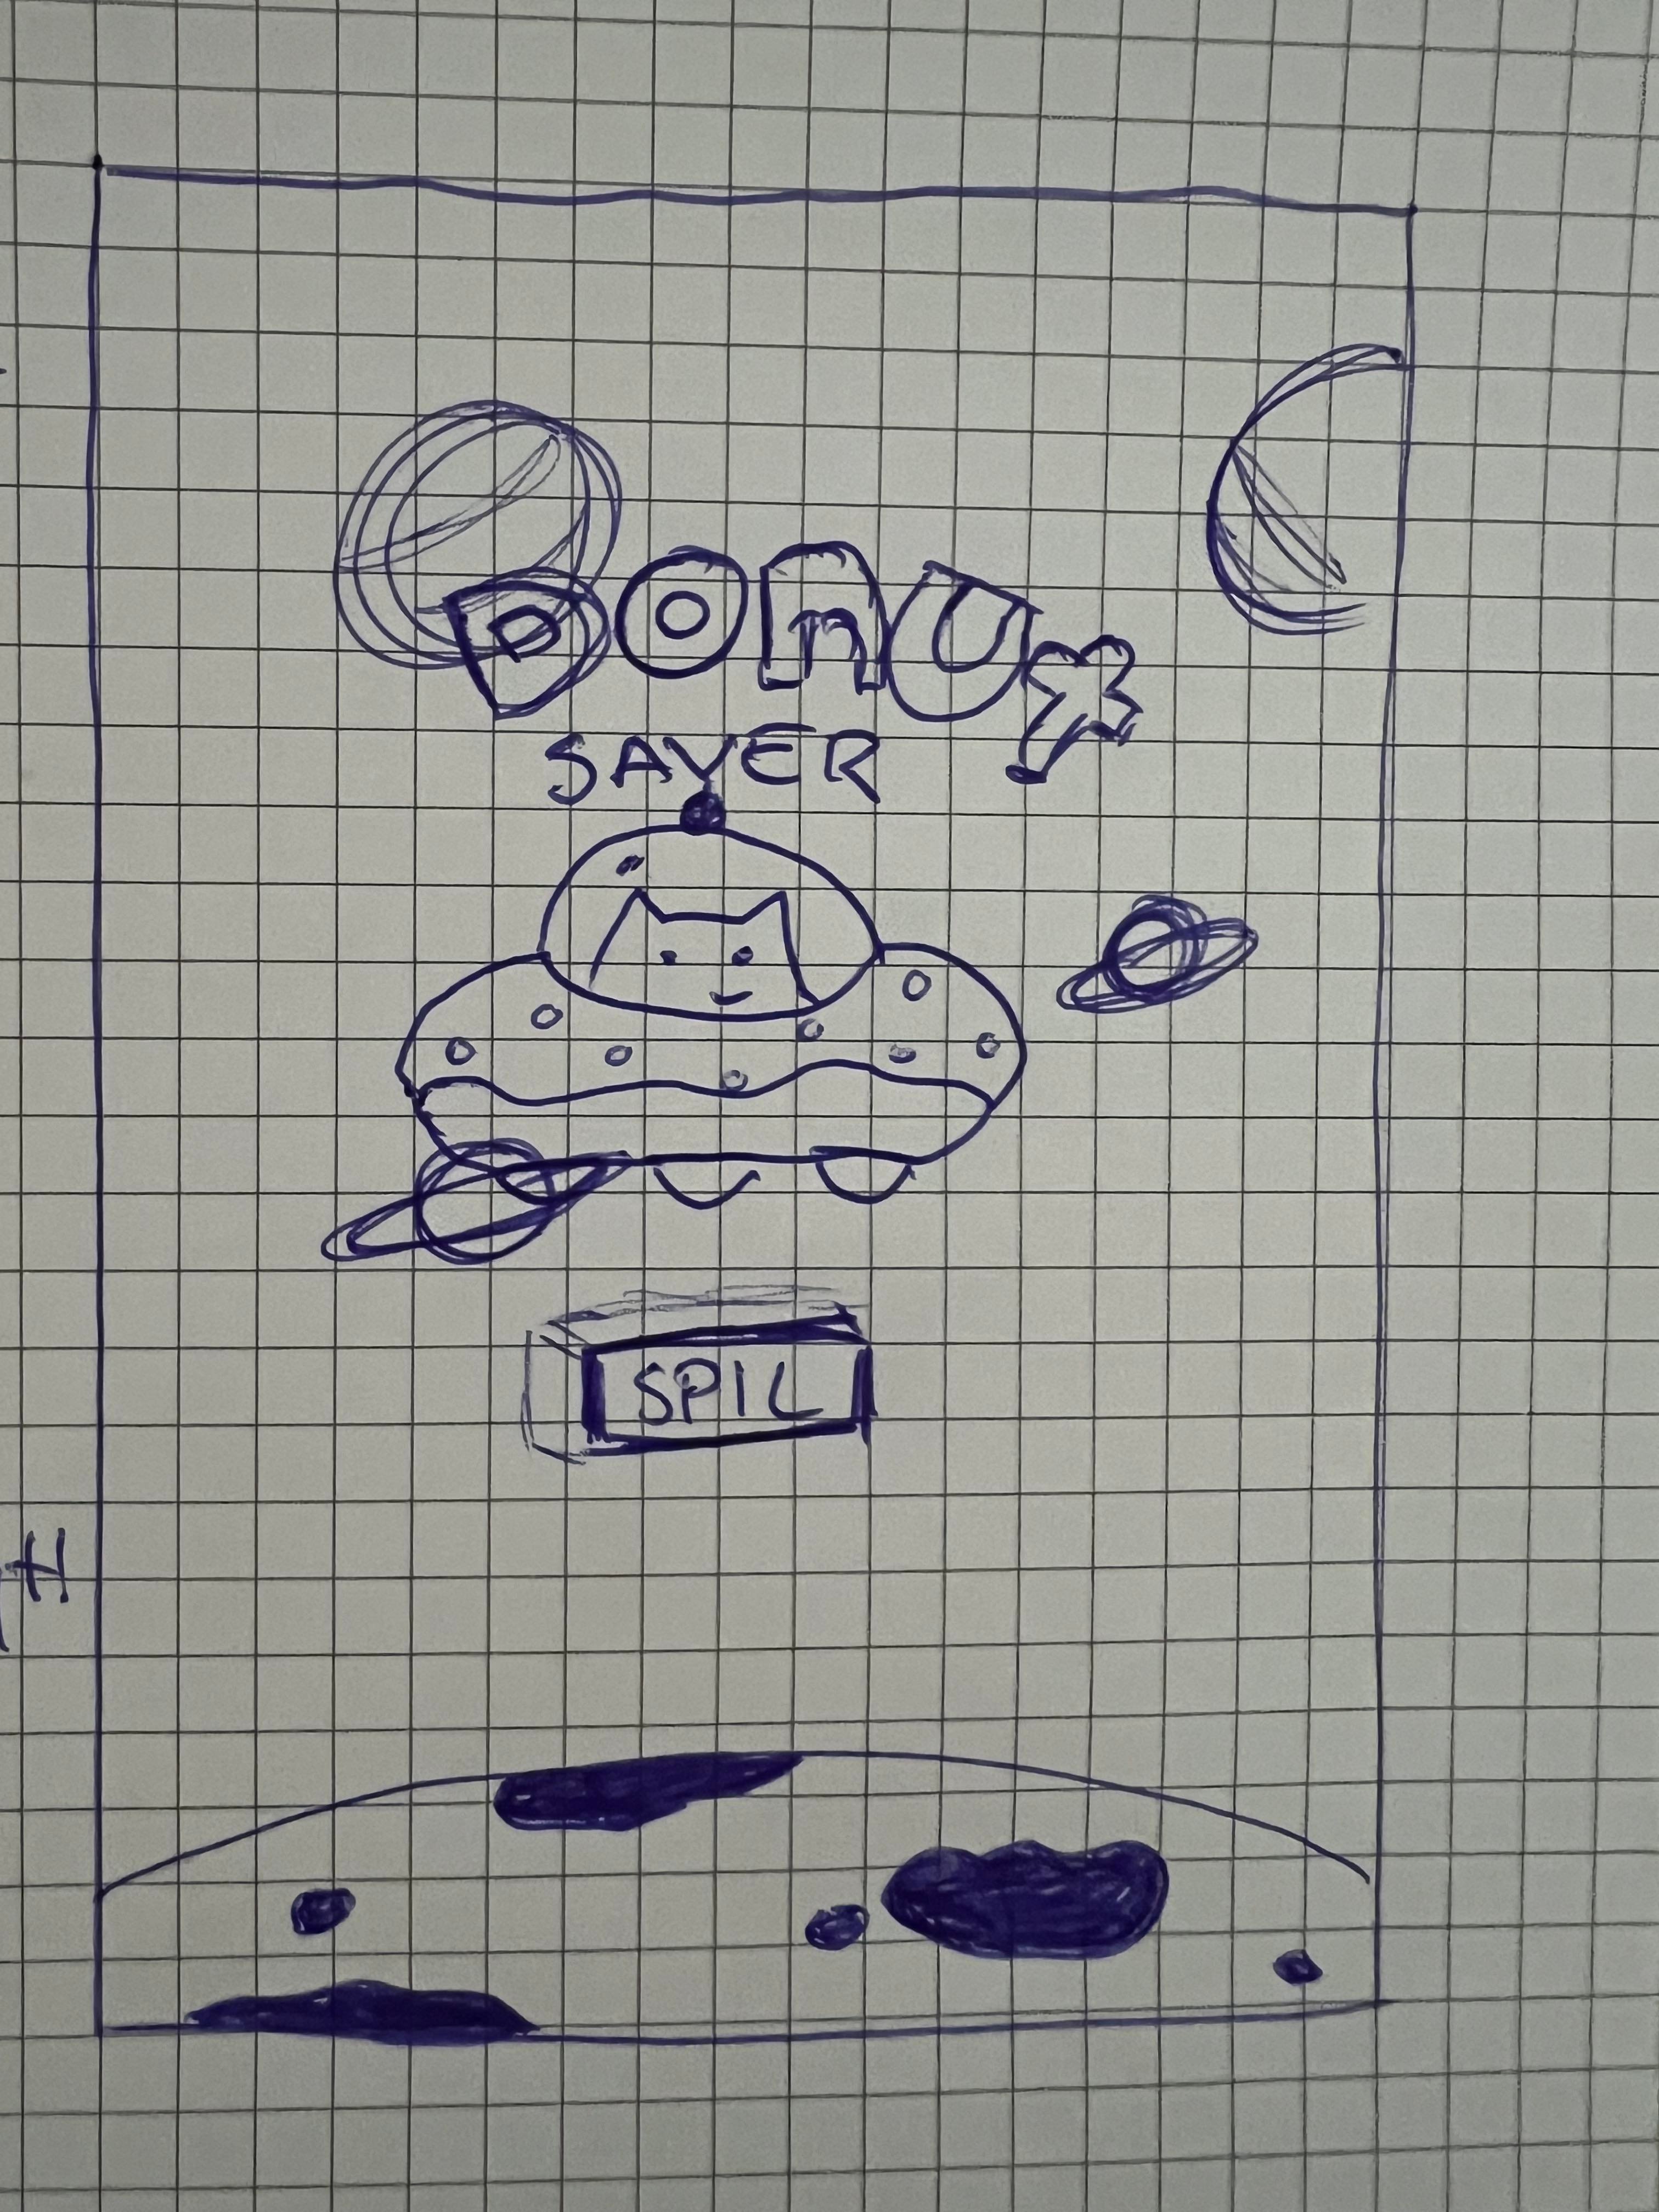 DONUT
SAVER
SPIL